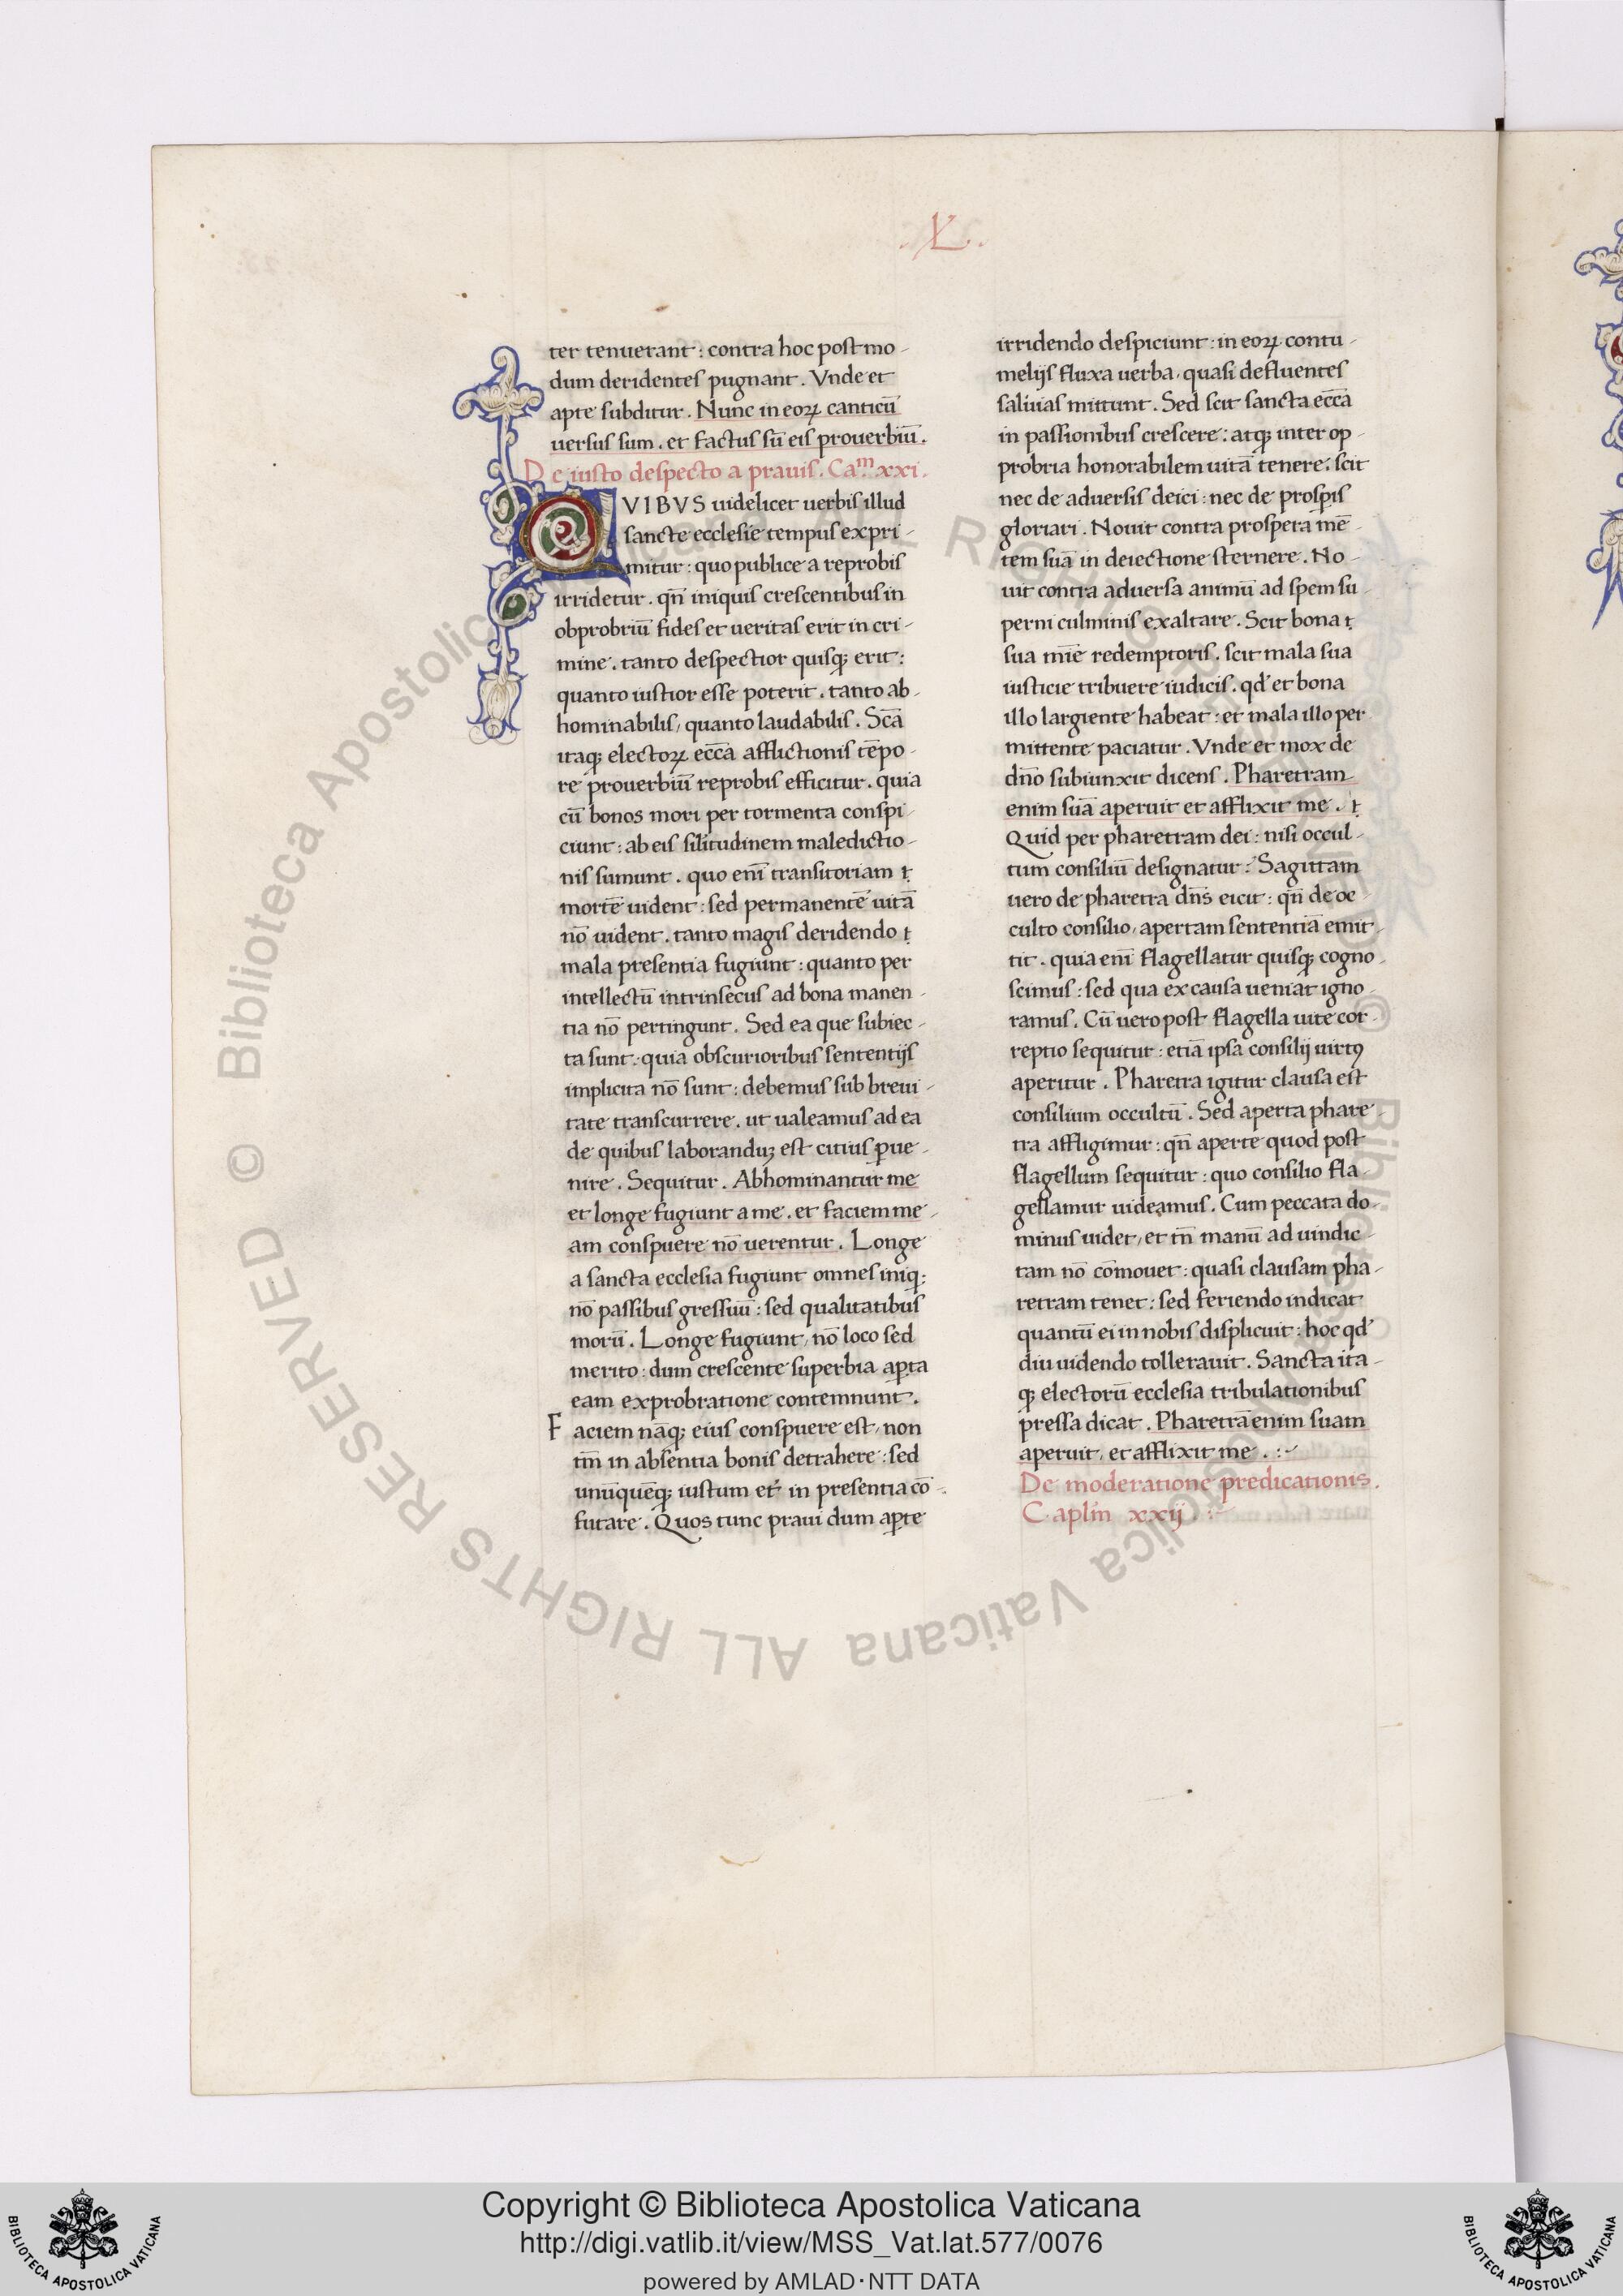 .XL.
ter tenuerant : contra hoc post mo-
dum deridentes pugnant . Vnde et
apte subditur . Nunc in eoꝝ canticū
uersus sum . et factus sū eis prouerbiū .
De iusto despecto a prauis . Ca.m xxi .
QVIBVS uidelicet uerbis illud
sancte ecclesie tempus expri-
mitur : quo publice a reprobis
irridetur . qn̄ iniquis crescentibus in
obprobriū fides et ueritas erit in cri-
mine . tanto despectior quisqꝫ erit :
quanto iustior esse poterit . tanto ab-
hominabilis, quanto laudabilis . Sc̄a
itaqꝫ electoꝝ ecc̄a afflictionis tēpo-
re prouerbiū reprobis efficitur . quia
cū bonos mori per tormenta conspi-
ciunt : ab eis sil̄itudinem maledictio-
nis sumunt . quo eni̅ transitoriam t
mortē uident : sed permanentē uitā
nō uident . tanto magis deridendo t
mala presentia fugiunt : quanto per
intellectū intrinsecus ad bona manen-
tia nō pertingunt . Sed ea que subiec-
ta sunt : quia obscurioribus sententijs
implicita nō sunt : debemus sub breui-
tate transcurrere . ut ualeamus ad ea
de quibus laboranduꝫ est citius ꝑue-
nire . Sequitur . Abhominantur me
et longe fugiunt a me . et faciem me-
am conspuere nō uerentur . Longe
a sancta ecclesia fugiunt omnes iniq :
nō passibus gressuū : sed qualitatibus
morū . Longe fugiunt, nō loco sed
merito : dum crescente superbia aꝑta
eam exprobratione contemnunt .
Faciem nāqꝫ eius conspuere est, non
tm̄ in absentia bonis detrahere : sed
unūquēqꝫ iustum et in presentia cō-
futare . Quos tunc praui dum aꝑte
irridendo despiciunt : in eoꝝ contu-
melijs fluxa uerba, quasi defluentes
saliuas mittunt . Sed scit sancta ecc̄a
in passionibus crescere : atqꝫ inter op-
probria honorabilem uitā tenere . scit
nec de aduersis deici : nec de prosꝑis
gloriari . Nouit contra prospera mē-
tem suā in deiectione sternere . No-
uit contra aduersa animū ad spem su-
perni culminis exaltare . Scit bona t
sua mīe redemptoris . scit mala sua
iusticie tribuere iudicis . qd' et bona
illo largiente habeat : et mala illo per-
mittente paciatur . Vnde et mox de
dn̄o subiunxit dicens . Pharetram
enim suā aperuit et afflixit me . t
Quid per pharetram dei : nisi occul-
tum consiliū designatur ? Sagittam
uero de pharetra dn̄s eicit : qn̄ de oc-
culto consilio, apertam sententiā emit-
tit . quia eni̅ flagellatur quisqꝫ cogno-
scimus : sed qua ex causa ueniat igno-
ramus . Cū uero post flagella uite cor-
reptio sequitur : etiā ipsa consilij uirtꝰ
aperitur . Pharetra igitur clausa est
consilium occultū . Sed aperta phare-
tra affligimur : qn̄ aperte quod post
flagellum sequitur : quo consilio fla-
gellamur uideamus . Cum peccata do-
minus uidet, et tn̄ manū ad uindic-
tam nō cōmouet : quasi clausam pha-
retram tenet : sed feriendo indicat
quantū ei in nobis displicuit : hoc qd'
diu uidendo tollerauit . Sancta ita-
qꝫ electorū ecclesia tribulationibus
pressa dicat . Pharetrā enim suam
aperuit, et afflixit me . :-
De moderatione predicationis .
C. aplm xxij . :-
© Biblioteca Apostolica Vaticana ALL RIGHTS RESERVED © Biblioteca Apostolica Vaticana ALL RIGHTS RESERVED
Copyright © Biblioteca Apostolica Vaticana
http://digi.vatlib.it/view/MSS_Vat.lat.577/0076
powered by AMLAD·NTT DATA
BIBLIOTECA APOSTOLICA VATICANA
BIBLIOTECA APOSTOLICA VATICANA